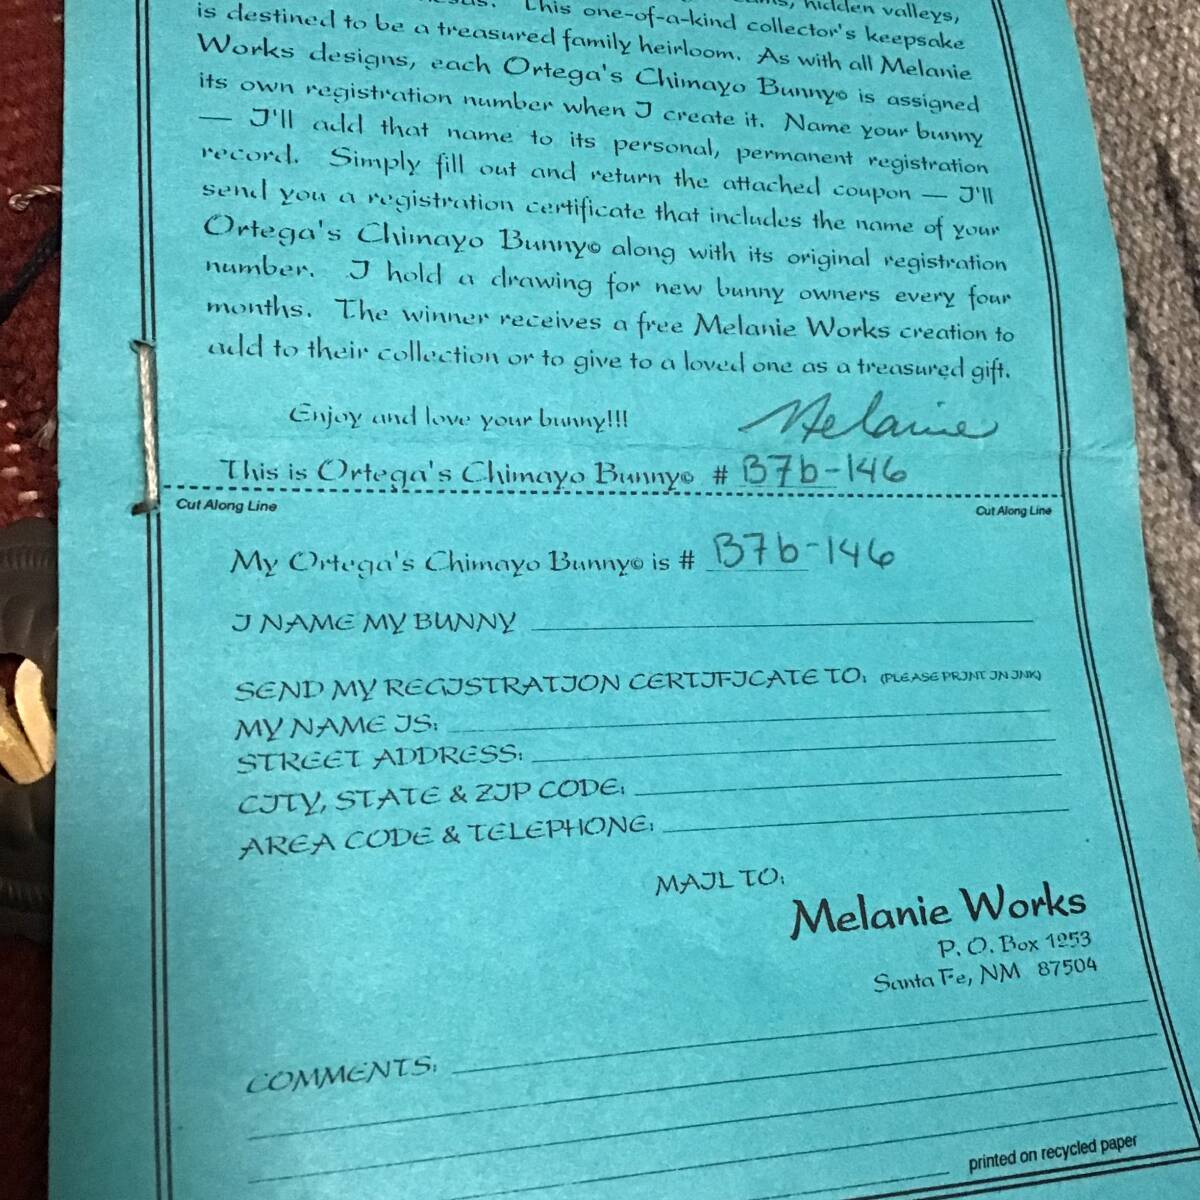 This one-of-a-kind collector's keepsake hidden valleys,
is destined to be a treasured family heirloom. As with all Melanie
Works designs, each Ortega's Chimayo Bunny© is assigned
its own registration number when I create it. Name your bunny
— I'll add that name to its personal, permanent registration
record. Simply fill out and return the attached coupon — I'll
send you a registration certificate that includes the name of your
Ortega's Chimayo Bunny© along with its original registration
number. I hold a drawing for new bunny owners every four
months. The winner receives a free Melanie Works creation to
add to their collection or to give to a loved one as a treasured gift.
Enjoy and love your bunny!!! Melanie
This is Ortega's Chimayo Bunny© # B7b-146
Cut Along Line Cut Along Line
My Ortega's Chimayo Bunny© is # B7b-146
I NAME MY BUNNY
SEND MY REGISTRATION CERTIFICATE TO: (PLEASE PRINT IN INK)
MY NAME IS:
STREET ADDRESS:
CITY, STATE & ZIP CODE:
AREA CODE & TELEPHONE:
MAIL TO:
Melanie Works
P. O. Box 1253
Santa Fe, NM 87504
COMMENTS:
printed on recycled paper